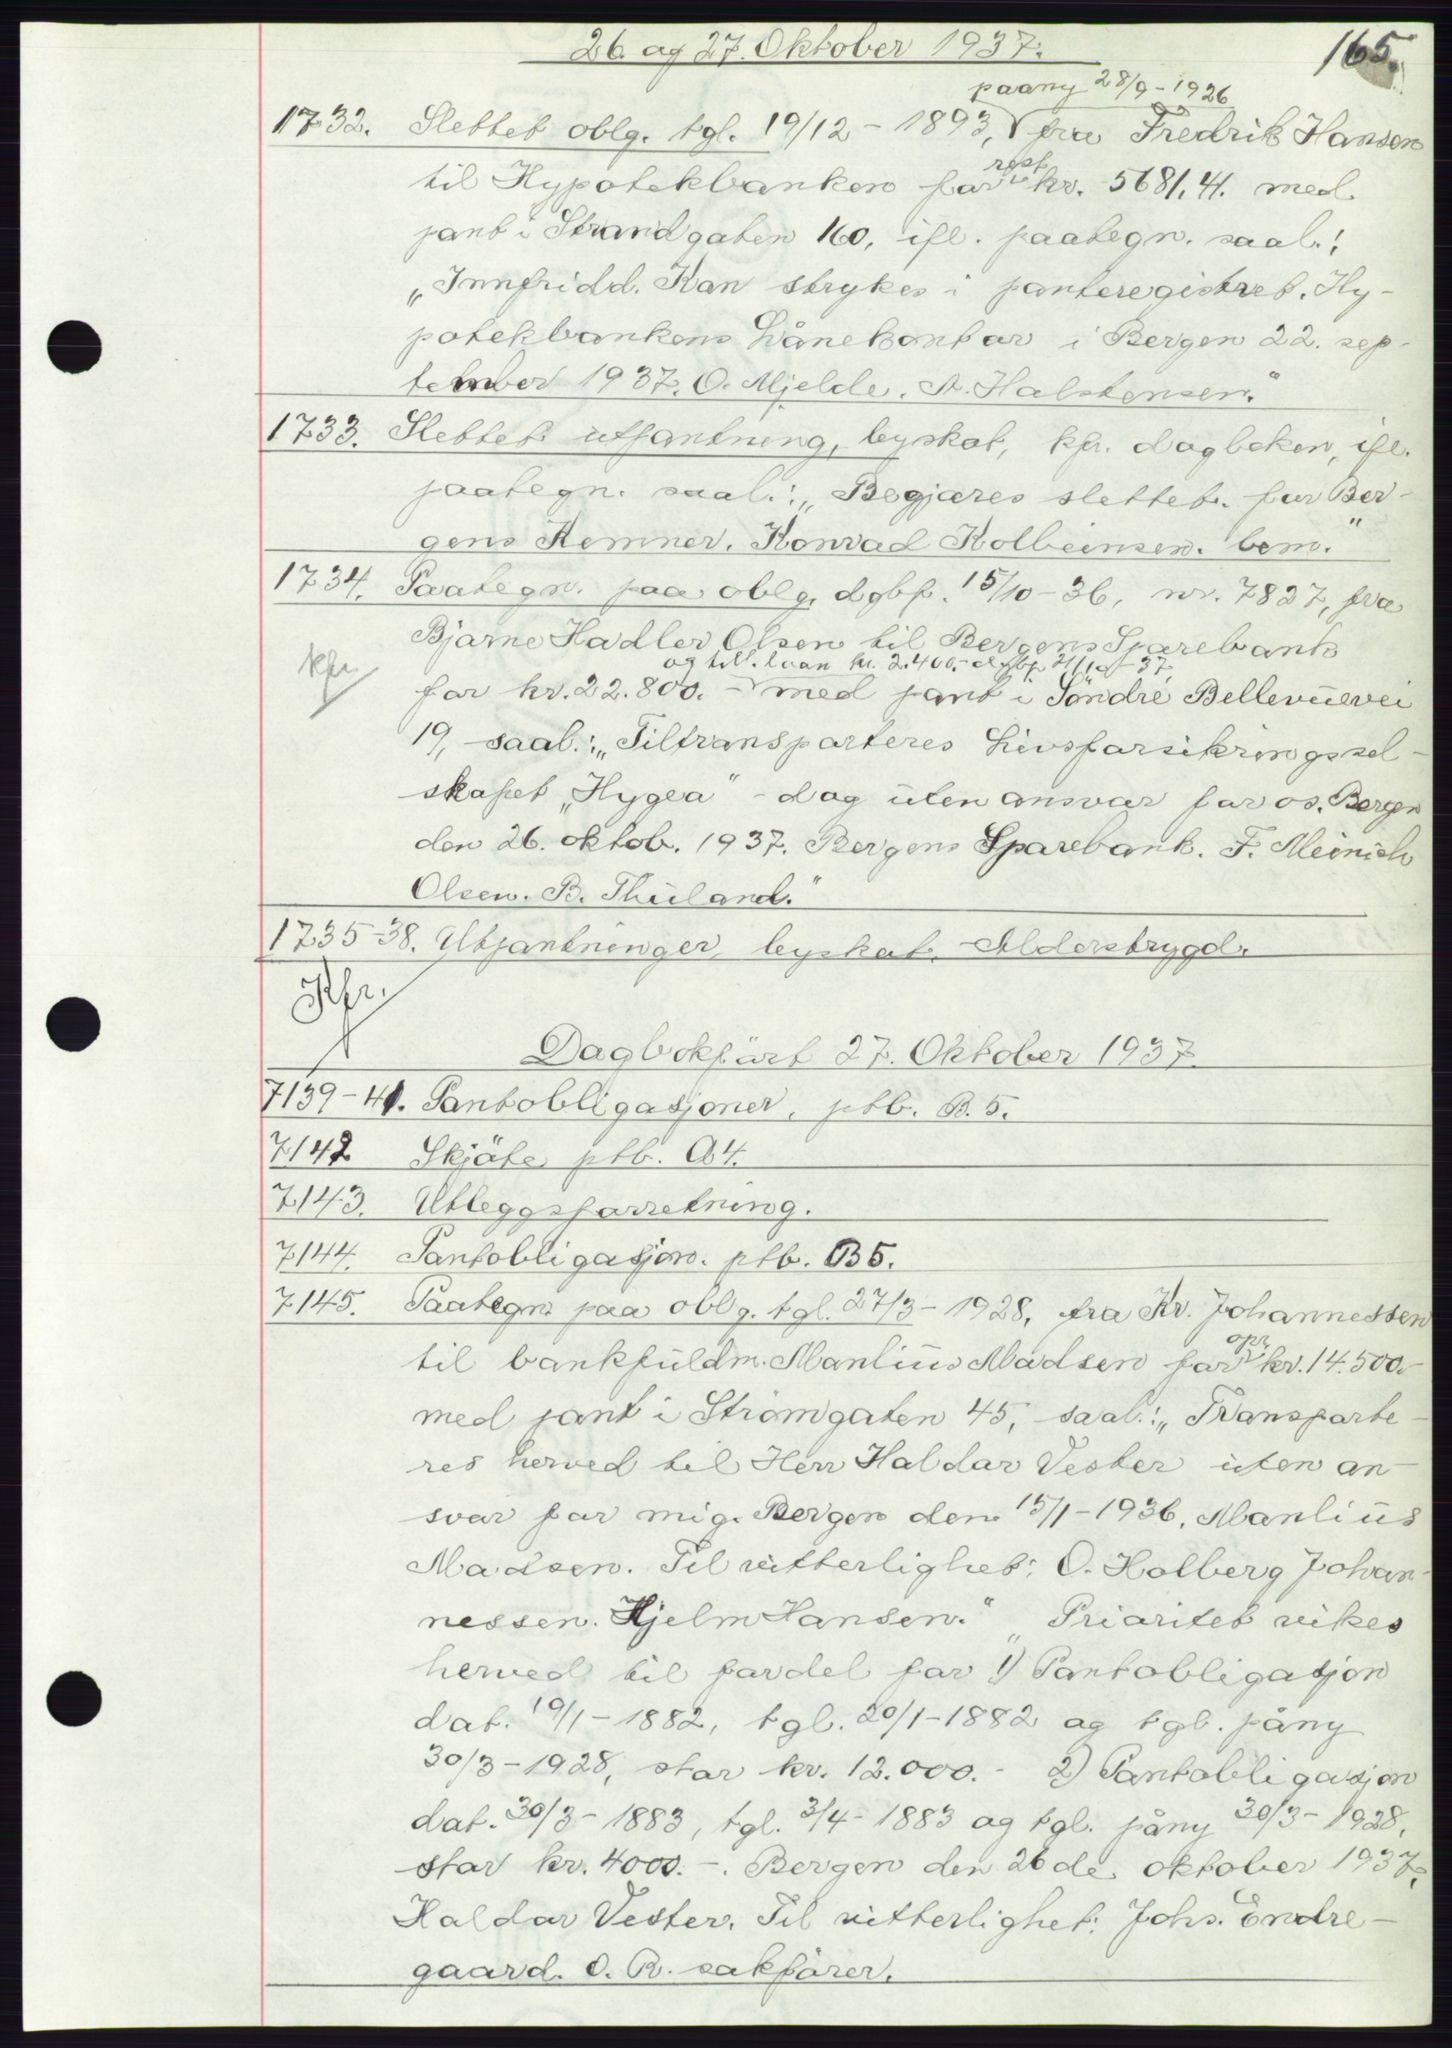 26. og 27. Oktober 1937.
165.
paany 28/9-1926
1732. Slettet oblg. tgl. 19/12-1893, fra Fredrik Hansen
rest
til Hypotekbanken for kr. 5681,41. med
pant i Strandgaten 160, ifl. paategn. saal.:
„Innfridd. Kan strykes i panteregistret. Hy-
potekbankens Lånekontor i Bergen 22. sep-
tember 1937. O. Mjelde. A. Halstensen."
1733. Slettet utpantning, byskat, kfr. dagboken, ifl.
paategn. saal.: „Begjæres slettet. for Ber-
gens Kemner. Konrad Kolbeinsen. bem."
1734. Paategn. paa oblg. dgbf. 15/10-36, nr. 7827, fra
Bjarne Hadler Olsen til Bergens Sparebank
kfr
og till. laan kr. 2.400.- dgbf. 21/10-37
for kr. 22.800.- med pant i Söndre Bellevüevei
19, saal.: „Tiltransporteres Livsforsikringssel-
skapet „Hygea" - dog uten ansvar for os. Bergen
den 26. oktob. 1937. Bergens Sparebank. F. Meinich
Olsen. B. Thuland."
1735-38. Utpantninger, byskat. Alderstrygd.
Kfr.
Dagbokfört 27. Oktober 1937.
7139-41. Pantobligasjoner. ptb. B. 5.
7142 Skjöte ptb. A4.
7143. Utleggsforretning.
7144. Pantobligasjon. ptb. B5.
7145. Paategn. paa oblg. tgl. 27/3-1928, fra Kr. Johannessen
opr.
til bankfuldm. Manlius Madsen for kr. 14.500.-
med pant i Strömgaten 45, saal.: „Transporte-
res herved til Herr Haldor Vester uten an-
svar for mig. Bergen den 15/1-1936. Manlius
Madsen. Til vitterlighet: O. Holberg Johan-
nessen. Hjelm Hansen." „Prioritet vikes
herved til fordel for 1) Pantobligasjon
dat. 19/1-1882, tgl. 20/1-1882 og tgl. påny
30/3-1928, stor kr. 12.000.- 2) Pantobligasjon
dat. 30/3-1883, tgl. 3/4-1883 og tgl. påny 30/3-1928,
stor kr. 4000.-. Bergen den 26de oktober 1937.
Haldor Vester. Til vitterlighet: Johs. Endre-
gaard. O. R. sakförer.